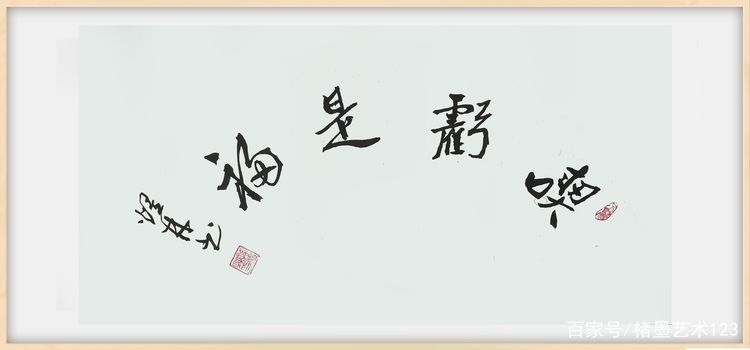 喫虧是福
百家号/楮墨艺术123